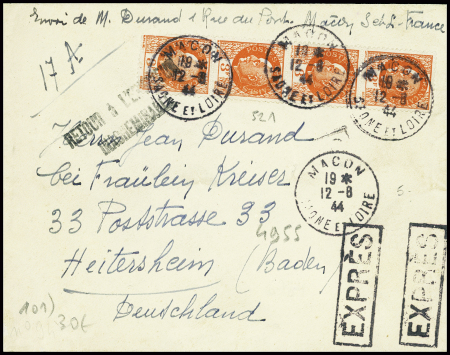 Envoi de M. Durand 1 Rue du Pont Macon S et L. France
17 A
MACON
19 *
12-8
44
SAONE ET LOIRE
MACON
19 *
12-8
44
SAONE ET LOIRE
MACON
12-8
44
SAONE ET LOIRE
RETOUR À L'EN
521
Herrn Jean Durand
bei Fräulein Kreiser
33 Poststrasse 33
Heitersheim (Baden)
Deutschland
MACON
19 *
12-8
44
SAONE ET LOIRE
4955
101)
30f
EXPRÈS
EXPRÈS